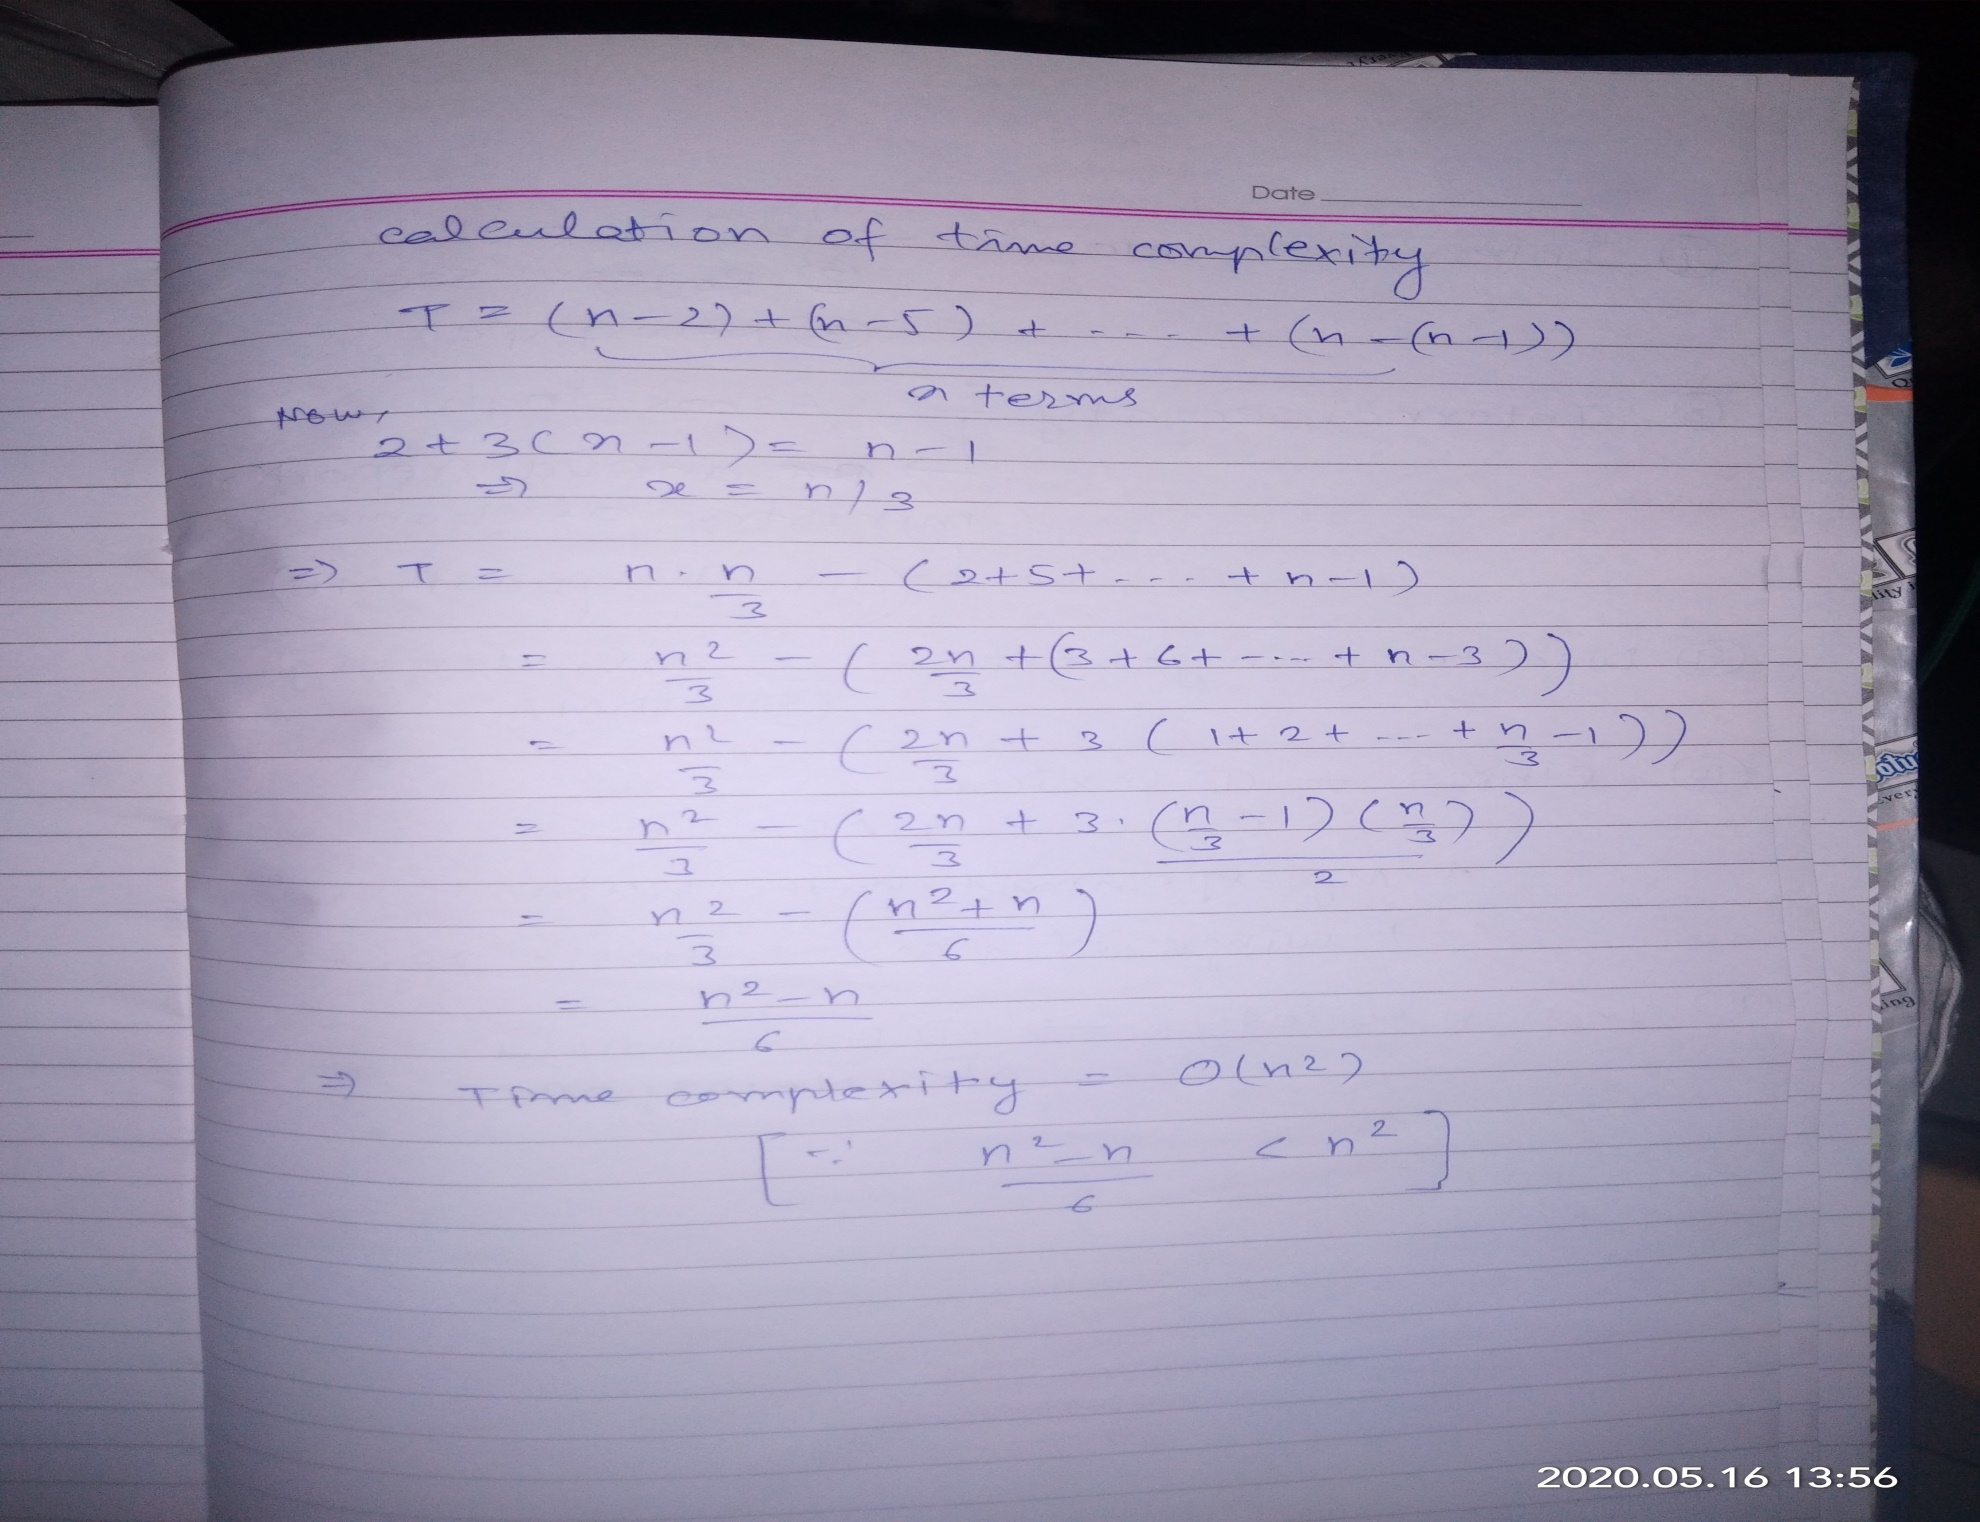 Date
calculation of time complexity
T = (n-2) + (n-5) + ---- + (n-(n-1))
x terms
Now,
2+3(x-1) = n-1
⇒ x = n/3
⇒ T = n·n/3 - (2+5+---- + n-1)
= n²/3 - (2n/3 + (3+6+---- + n-3))
= n²/3 - (2n/3 + 3 (1+2+ --- + n/3 -1))
= n²/3 - (2n/3 + 3·(n/3 -1)(n/3)/2)
= n²/3 - (n²+n/6)
= n²-n/6
⇒ Time complexity = O(n²)
[∵ n²-n/6 < n²]
2020.05.16 13:56